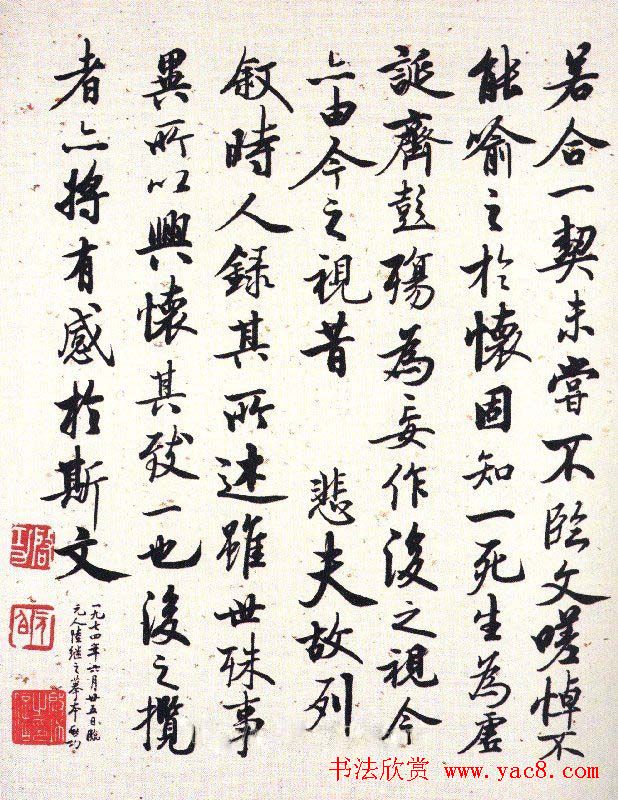 若合一契未嘗不臨文嗟悼不
能喻之於懷固知一死生為虛
誕齊彭殤為妄作後之視今
亦由今之視昔 悲夫故列
敘時人錄其所述雖世殊事
異所以興懷其致一也後之攬
者亦將有感於斯文
一九七四年六月廿五日臨
元人陸继之摹本 启功
书法欣赏 www.yac8.com